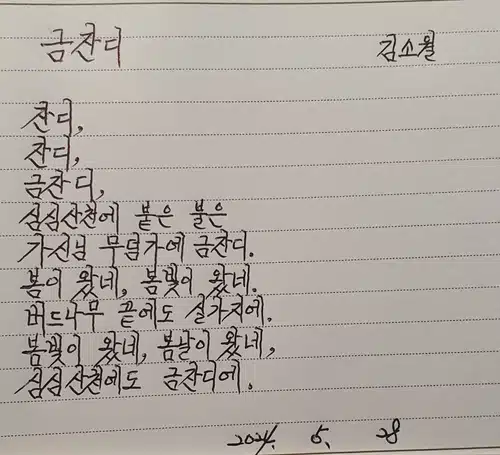 금잔디 김소월
잔디,
잔디,
금잔디,
심심산천에 붙은 불은
가신님 무덤가에 금잔디.
봄이 왔네, 봄빛이 왔네.
버드나무 끝에도 실가지에.
봄빛이 왔네, 봄날이 왔네,
심심산천에도 금잔디에.
2024. 5. 28